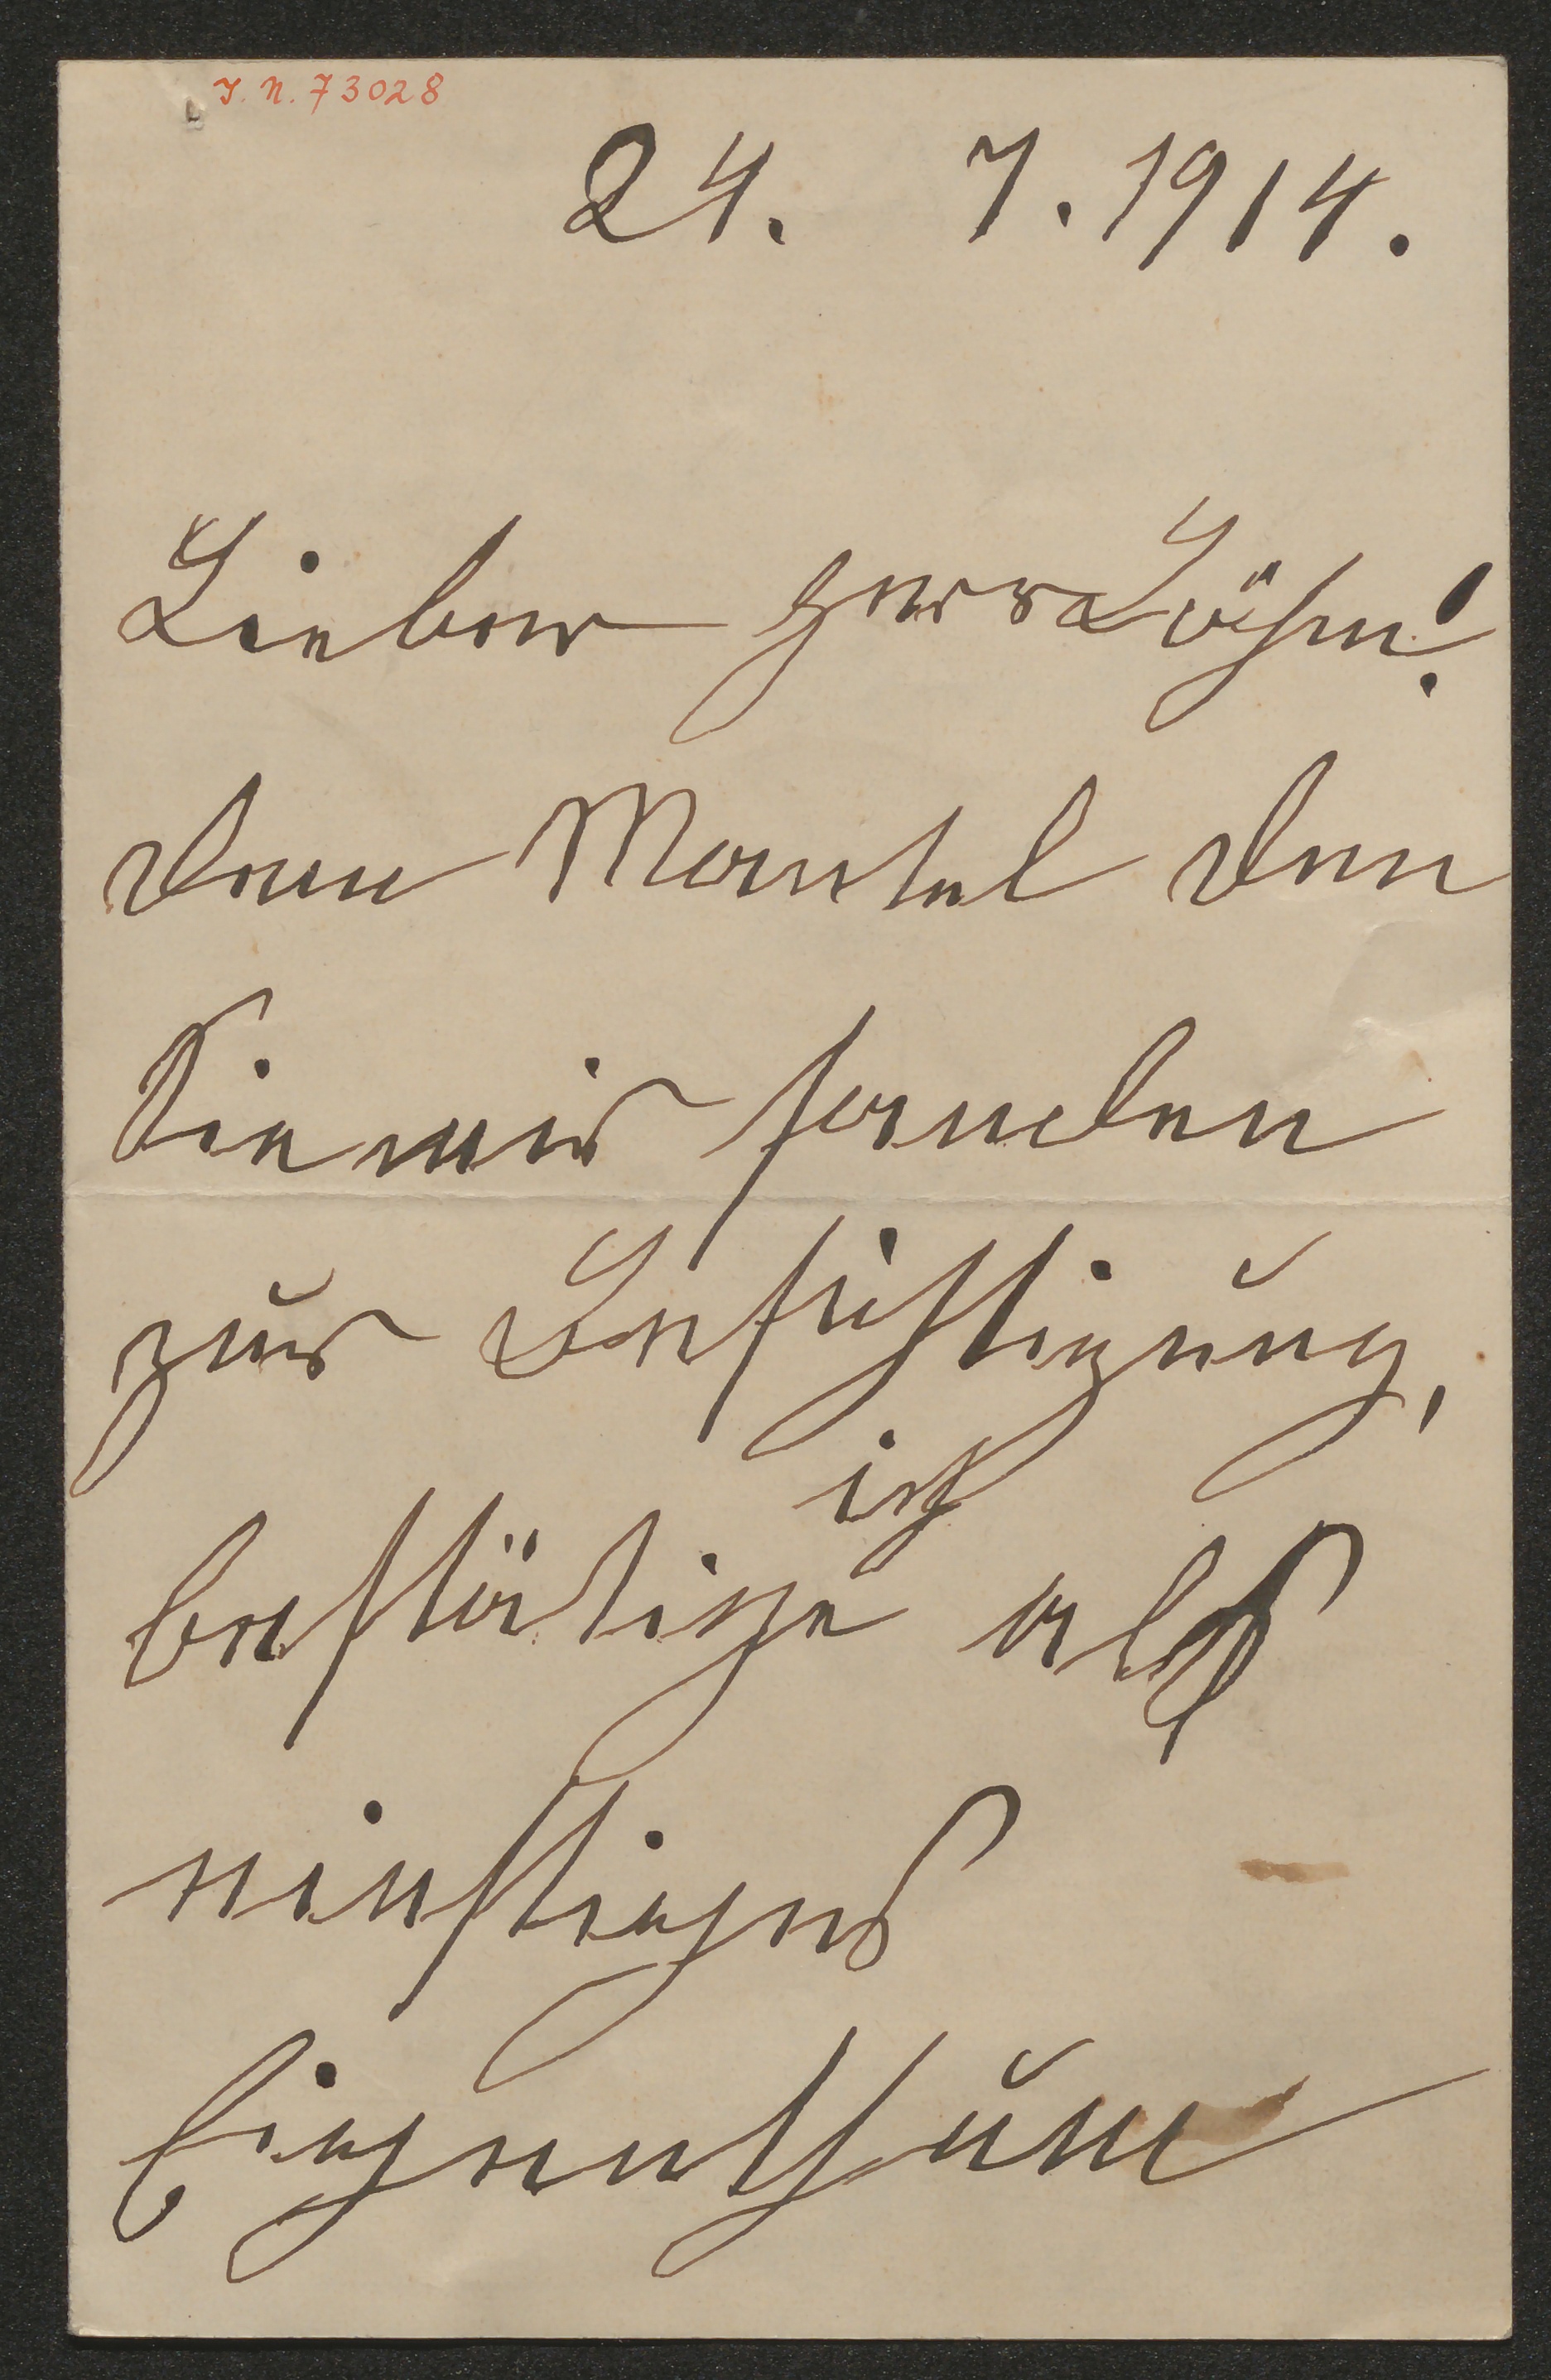 I. N. 73028
24. 7. 1914.
Lieber Herr Löhn!
den Mantel den
Sie mir sanden
zur Besichtigung,
ich
bestätige als
einstiges
Eigenthum